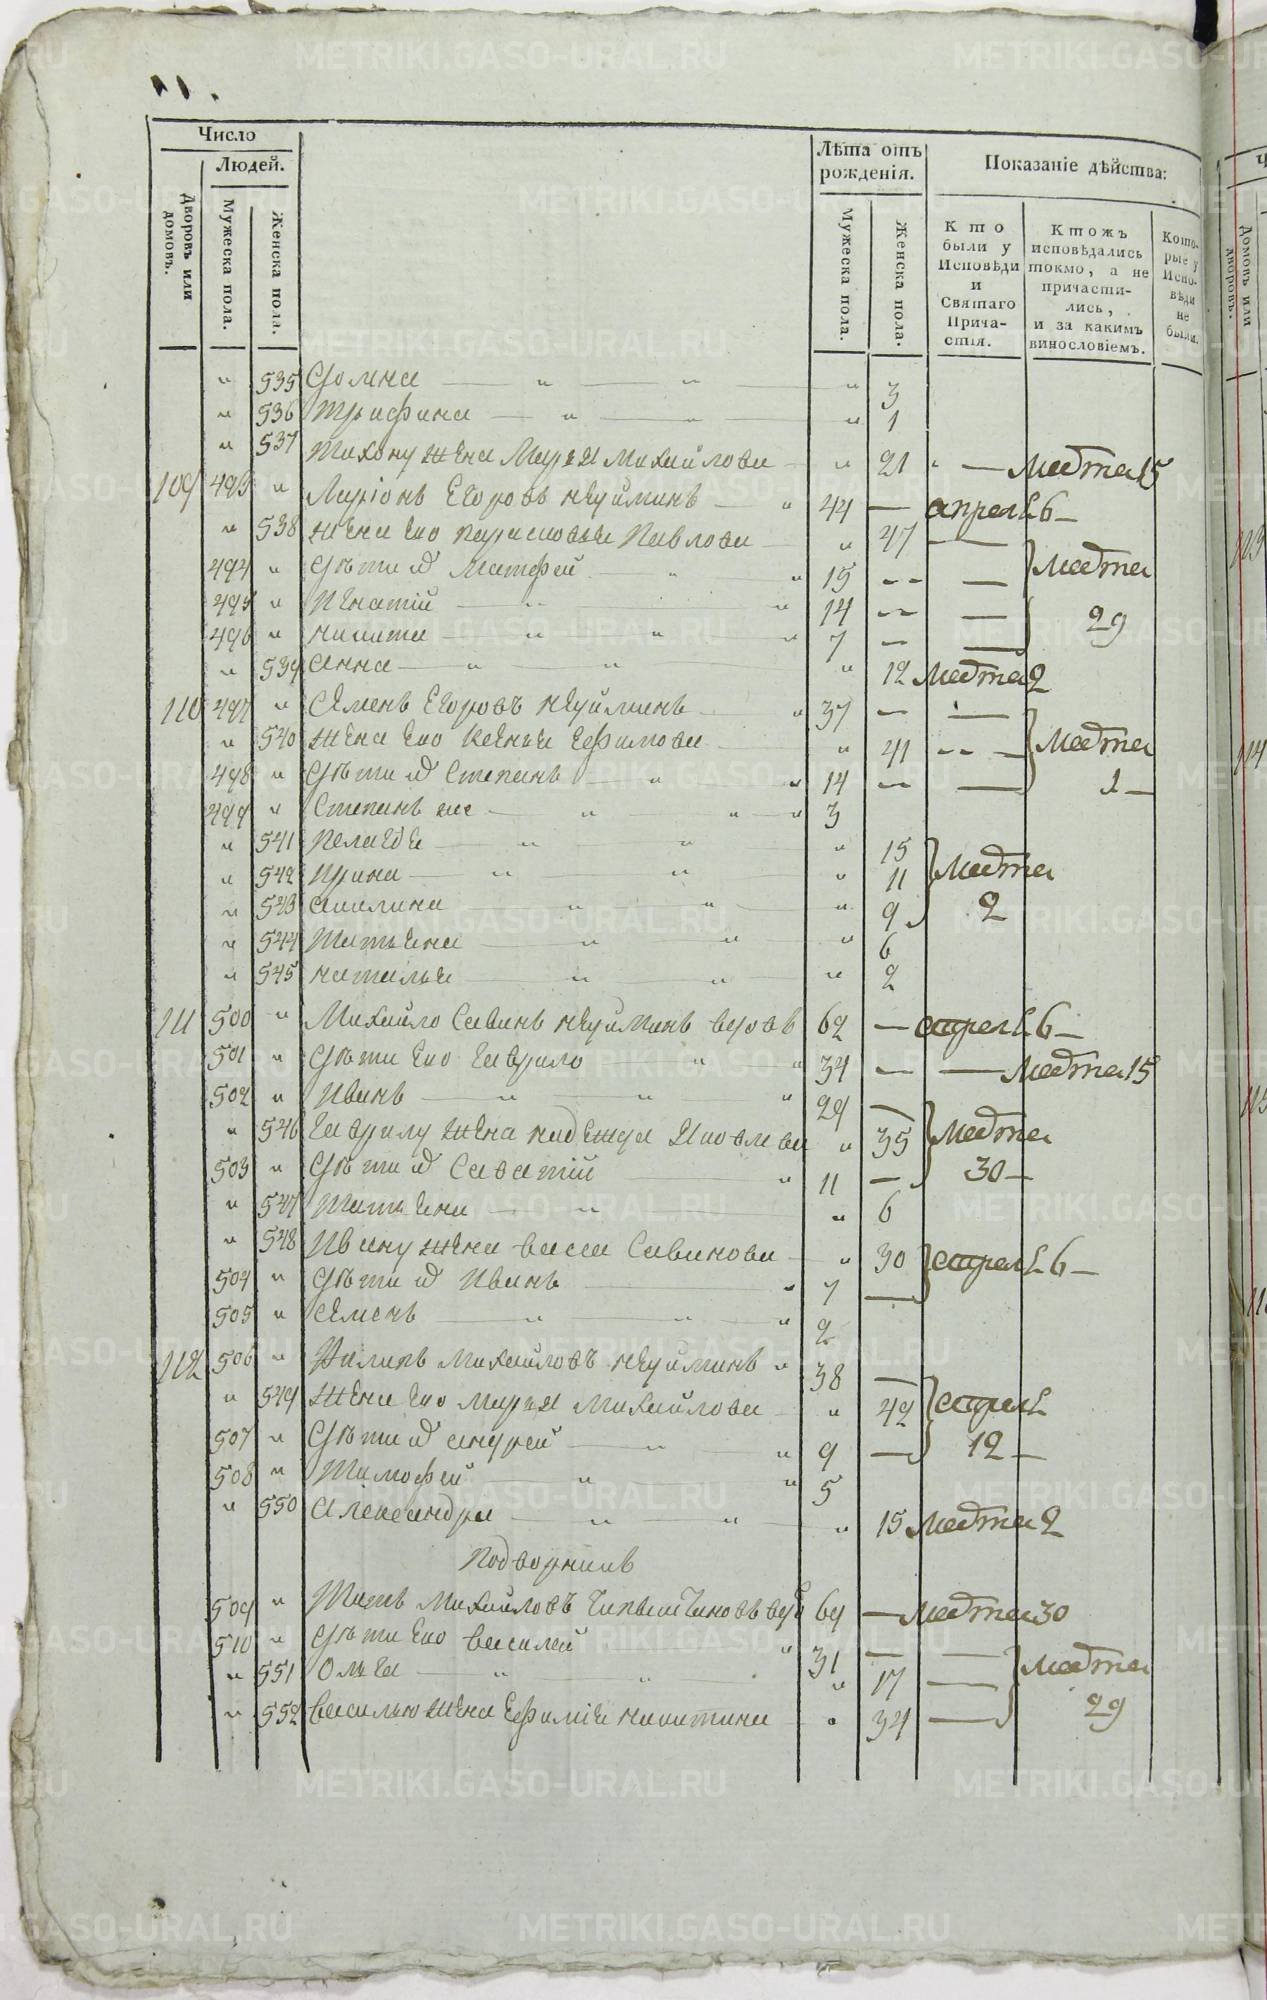 Число
Людей.
Дворовъ или домовъ.
Мужеска пола.
Женска пола.
Лѣта отъ рожденія.
Мужеска пола.
Женска пола.
Показаніе дѣйства:
Кто были у Исповѣди и Святаго Причастія.
Ктожъ исповѣдались токмо, а не причастились, и за какимъ винословіемъ.
Которые у Исповѣди не были.
" 535 Домна " " " 3
" 536 Трифена " " " 1
" 537 Тихону жена Марья Михайлова " 21 " — Марта 15
109 493 " Ларіонъ Егоровъ Неуйминъ " 44 — апреля 6 —
" 538 жена ево Парасковья Павлова " 47 —
494 " Дѣти их Матфей " " 15 — — Марта
495 " Игнатій " " 14 — — 29
496 " Никита " " " 7 — —
" 539 Анна " " " 12 Марта 2
110 497 " Семенъ Егоровъ Неуйминъ " 37 — —
" 540 жена ево Ксенья Ефимова " 41 — — Марта
498 " Дѣти их Степанъ " " 14 — — 1 —
499 " Степанъ же " " " 3
" 541 Пелагея " " " 15
" 542 Ирина " " " 11 Марта
" 543 Акилина " " " 9 2
" 544 Татьяна " " " 6
" 545 Наталья " " " 2
111 500 " Михайло Савинъ Неуйминъ вдовъ 62 — апреля 6 —
501 " Дѣти ево Гаврило " " 34 — — Марта 15
502 " Иванъ " " " 29 —
" 546 Гаврилу жена Надежда Яковлева " 35 Марта
503 " Дѣти их Саватій " 11 — 30 —
" 547 Татьяна " " 6
" 548 Ивану жена Васса Савинова " 30 апреля 6 —
504 " Дѣти их Иванъ " 7 —
505 " Семенъ " " " 2
112 506 " Филипъ Михайловъ Неуйминъ " 38 —
" 549 жена ево Марья Михайлова " 42 апреля
507 " Дѣти их Андрей " " 9 — 12 —
508 " Тимофей " " 5
" 550 Александра " " " 15 Марта 2
Подворникъ
509 " Титъ Михайловъ 69 — Марта 30
510 " Дѣти ево Василей " 31 — —
" 551 Ольга " " " 17 — Марта
" 552 Василью жена Ефимія Никитина " 34 — 29